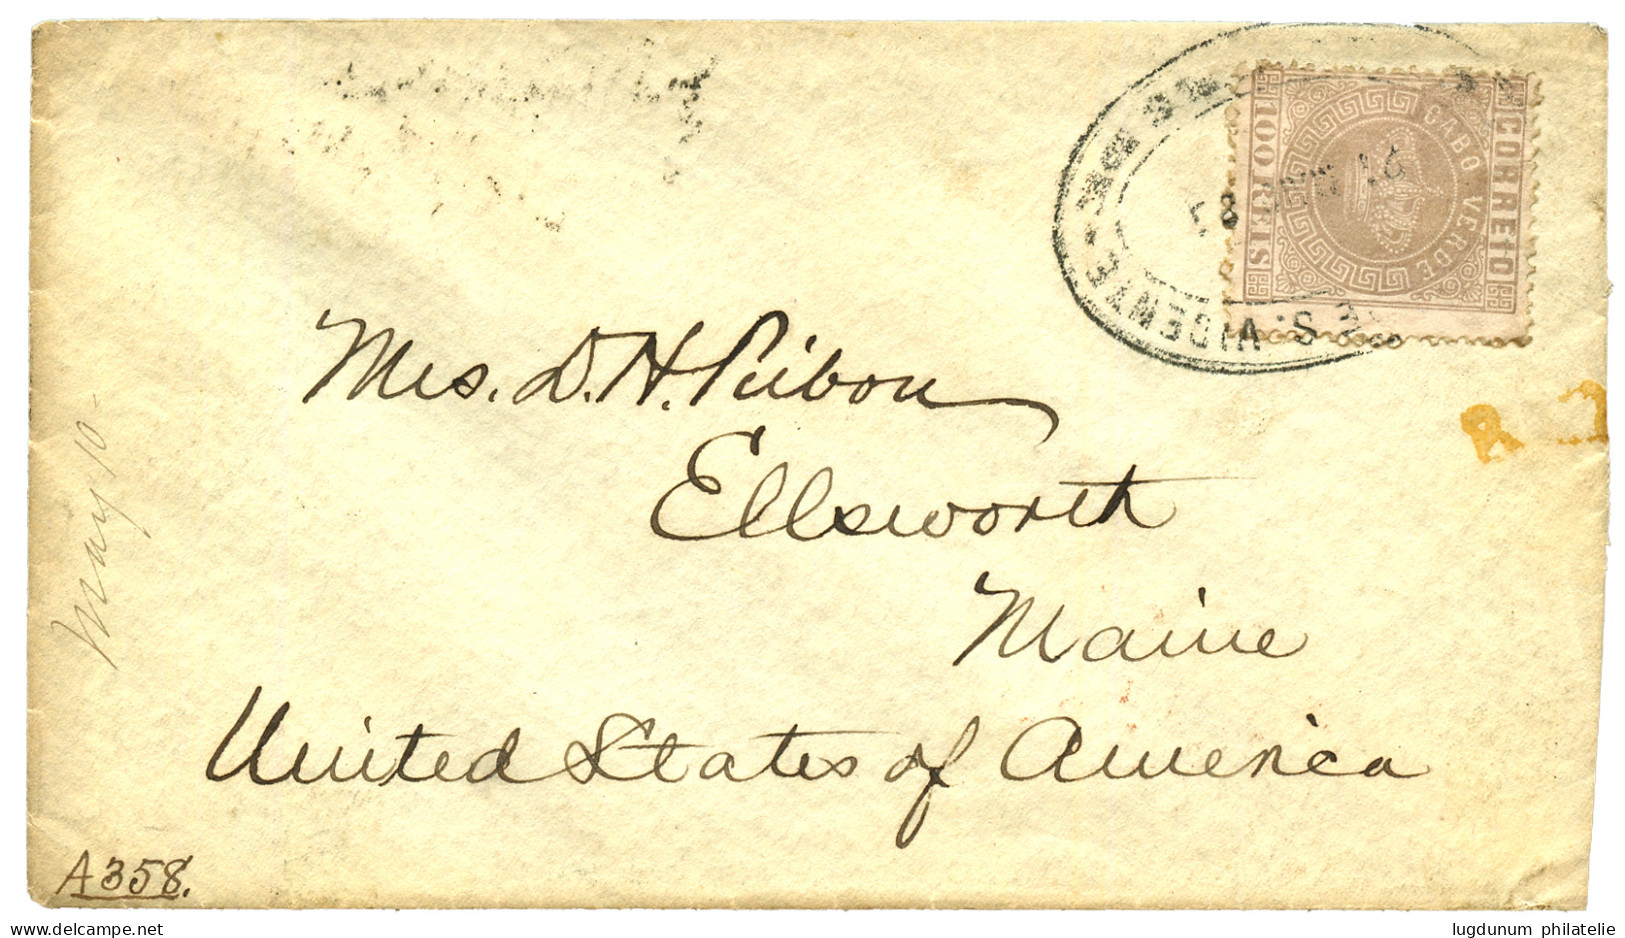 CORREIO
CABO VERDE
100 REIS
S. VICENTE
Mrs. D. H. Ribon
Ellsworth
Maine
United States of America
May 10-
A358.
lugdunum philatelie